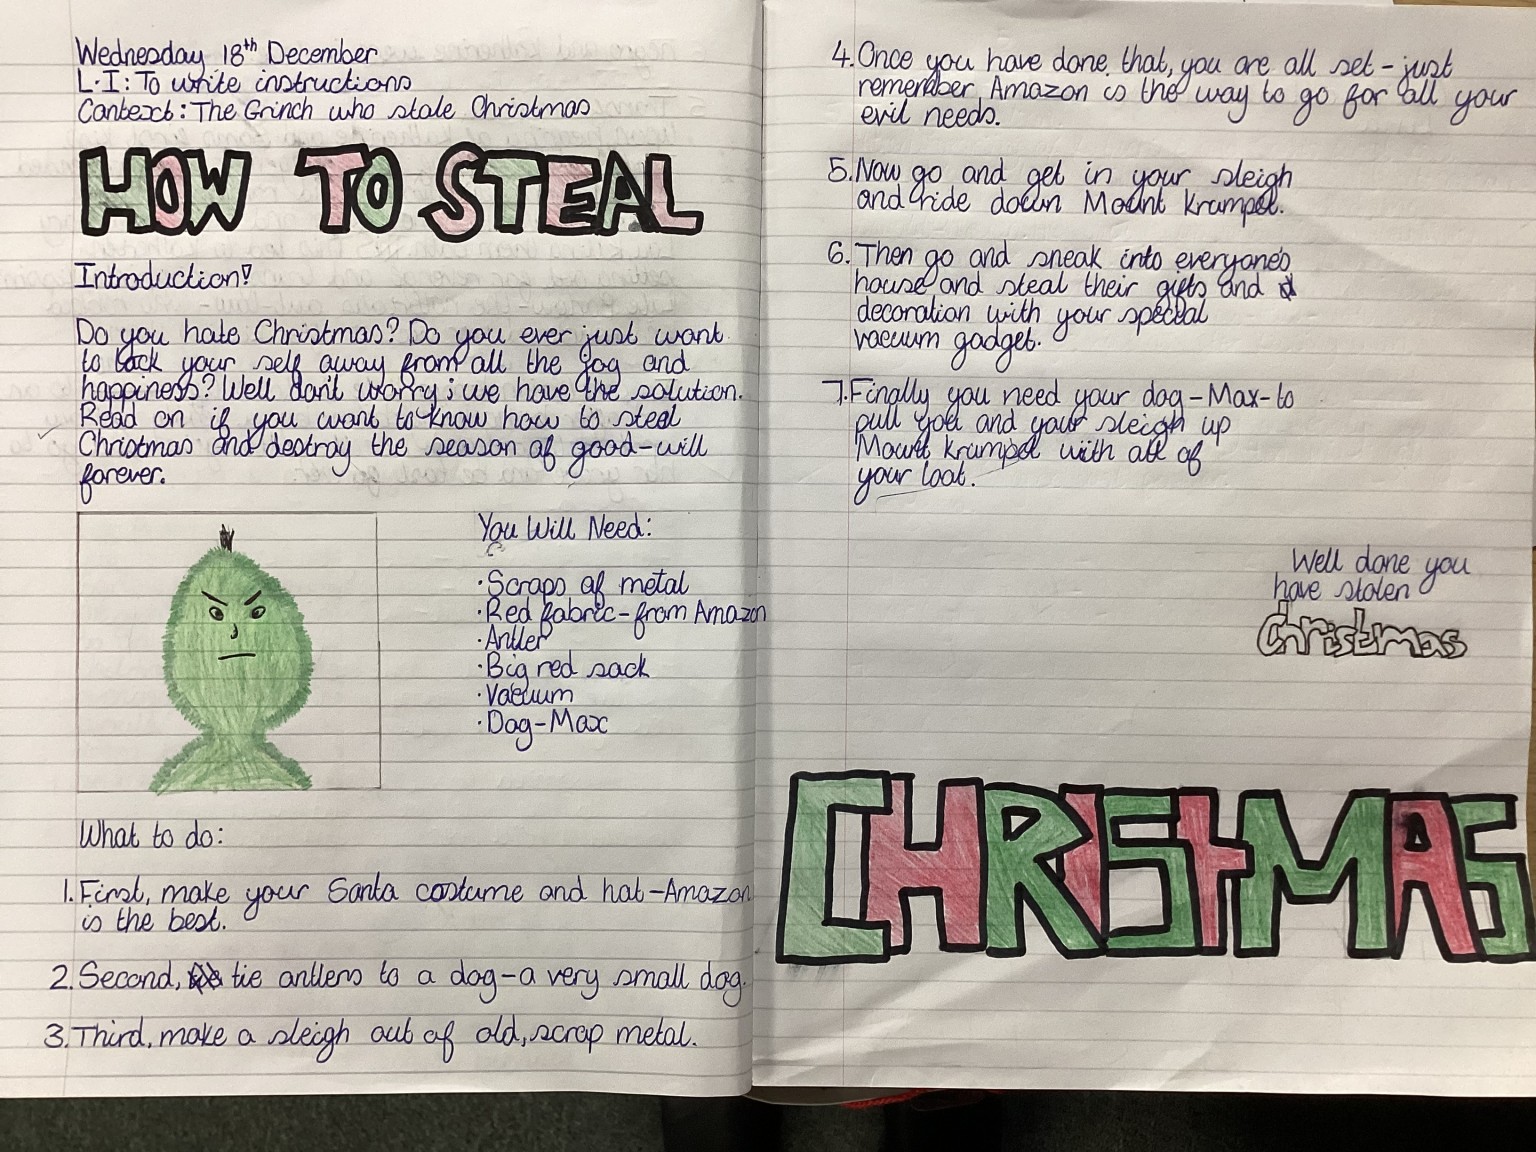 Wednesday 18th December
L.I: To write instructions
Context: The Grinch who stole Christmas
HOW TO STEAL
Introduction!
Do you hate Christmas? Do you ever just want
to lock your self away from all the joy and
happiness? Well don't worry; we have the solution.
Read on if you want to know how to steal
Christmas and destroy the season of good-will
forever.
You Will Need:
·Scraps of metal
·Red fabric-from Amazon
·Antler
·Big red sack
·Vacuum
·Dog-Max
What to do:
1. First, make your Santa costume and hat-Amazon
is the best.
2. Second, tie antlers to a dog-a very small dog.
3. Third, make a sleigh out of old, scrap metal.
4. Once you have done that, you are all set - just
remember, Amazon is the way to go for all your
evil needs.
5. Now go and get in your sleigh
and ride down Mount Krumpet.
6. Then go and sneak into everyone's
house and steal their gifts and
decoration with your special
vacuum gadget.
7. Finally you need your dog-Max-to
pull you and your sleigh up
Mount Krumpet with all of
your loot.
Well done you
have stolen
Christmas
CHRIStMAS